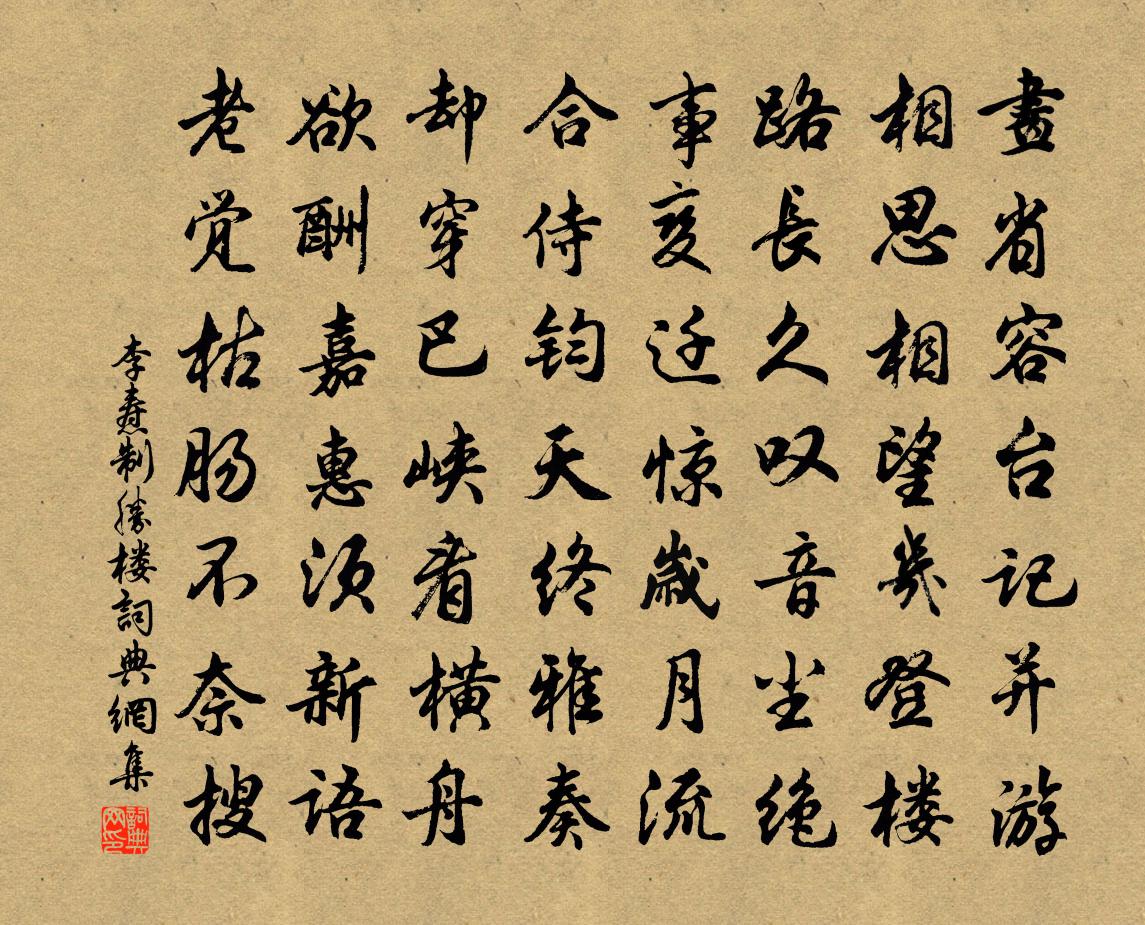 畫省容台记并游
相思相望幾登楼
路長久叹音尘绝
事变迁惊歲月流
合侍钧天终雅奏
却穿巴峡看横舟
欲酬嘉惠须新語
老觉枯肠不奈搜
李焘制勝楼詞典網集
詞典网印